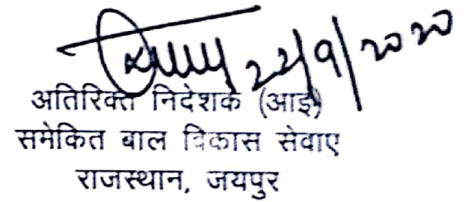 22/9/2020
अतिरिक्त निदेशक (आई)
समेकित बाल विकास सेवाए
राजस्थान, जयपुर